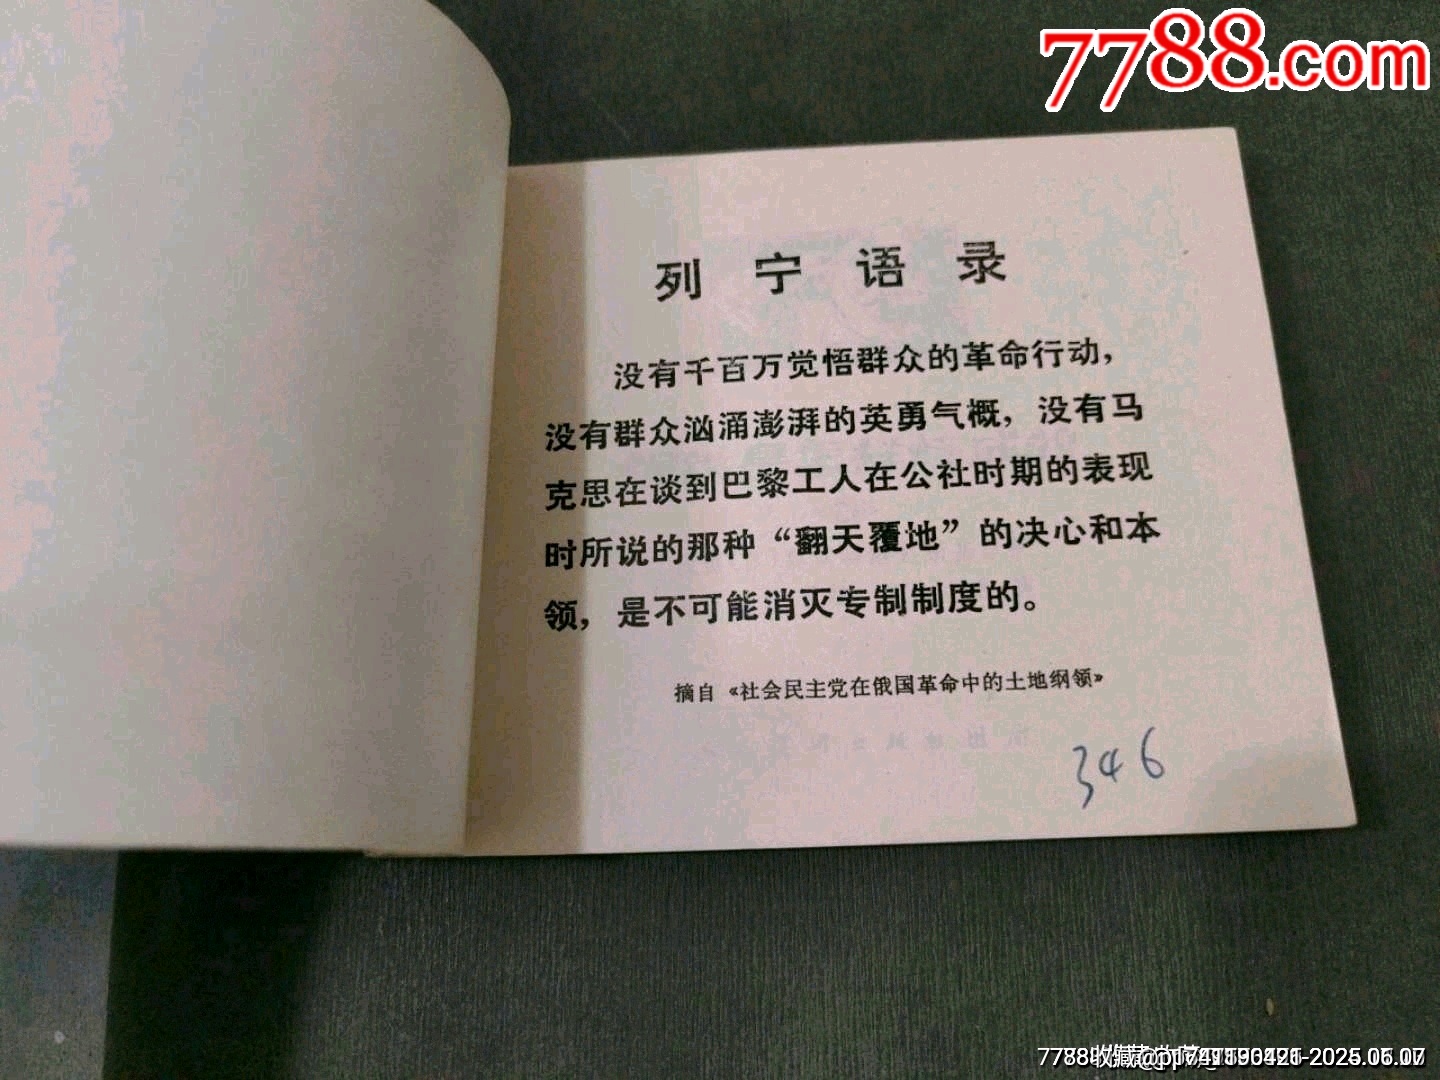 7788.com
列宁语录
没有千百万觉悟群众的革命行动，
没有群众汹涌澎湃的英勇气概，没有马
克思在谈到巴黎工人在公社时期的表现
时所说的那种“翻天覆地”的决心和本
领，是不可能消灭专制制度的。
摘自《社会民主党在俄国革命中的土地纲领》
346